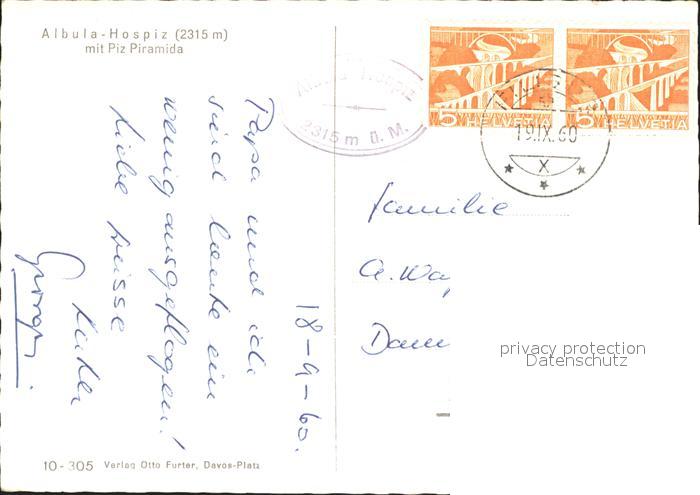 Albula-Hospiz (2315 m)
mit Piz Piramida
Albula Hospiz
2315 m ü. M.
5 HELVETIA
5 HELVETIA
19.IX.60
X
18-9-60.
Papa und ich
sind heute ein
wenig ausgeflogen!
Liebe Grüsse
Familie
A. Wa
privacy protection
Datenschutz
10-305 Verlag Otto Furter, Davos-Platz